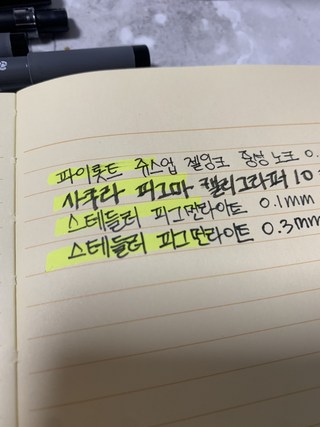 파이롯트 쥬스업 겔잉크 중성 노크 0.
사쿠라 피그마 캘리그라퍼 10
스테들러 피그먼라이트 0.1mm
스테들러 피그먼라이트 0.3mm